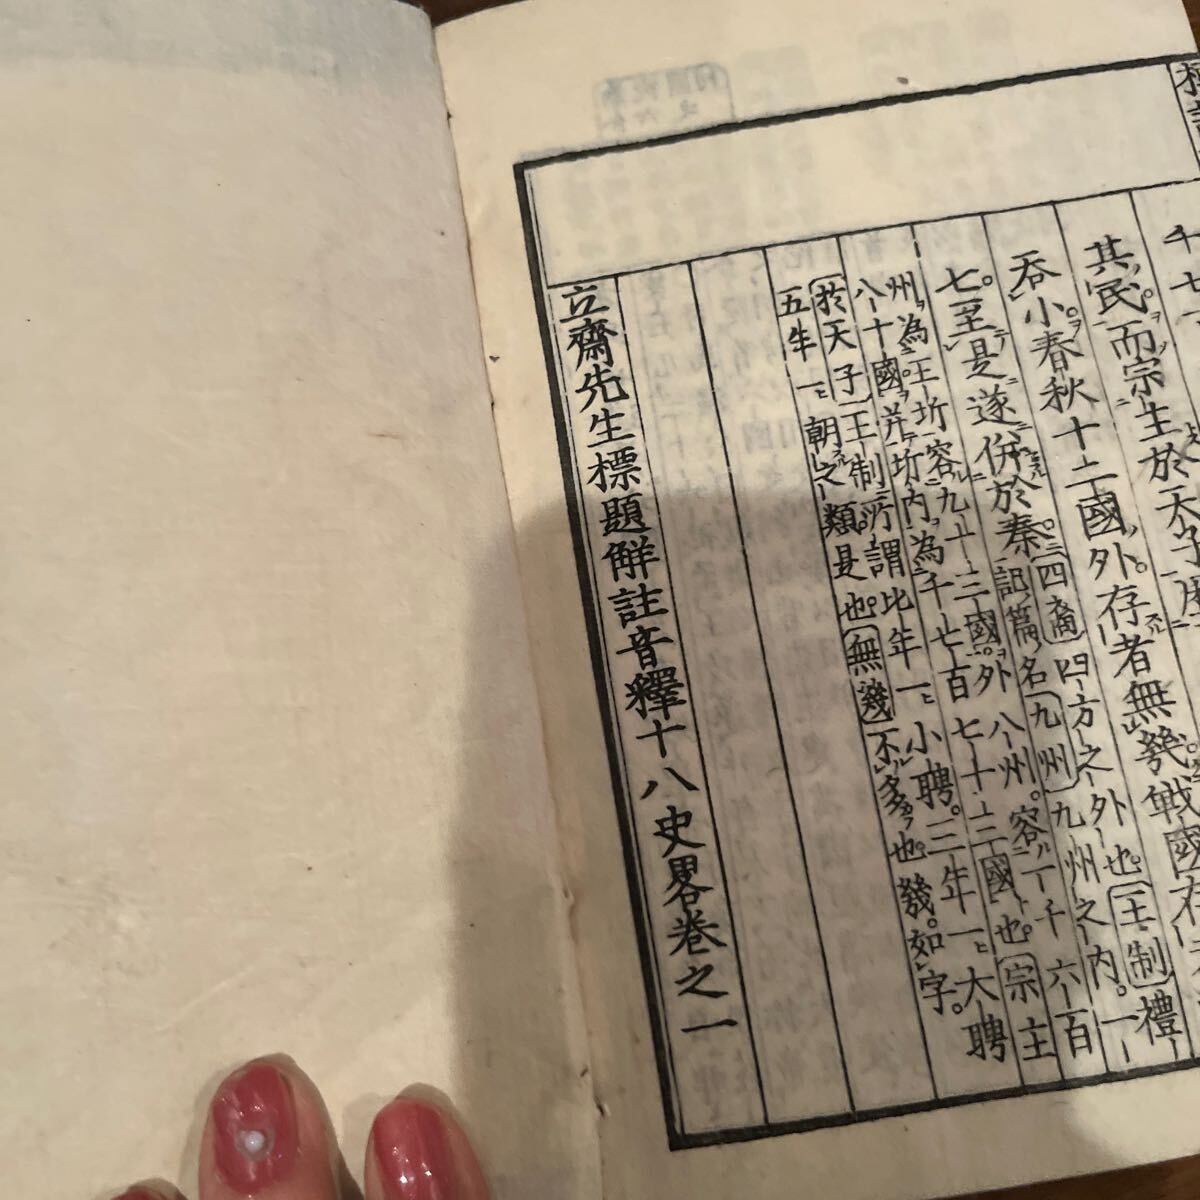 標註
千七一
其民而宗生於天子
呑小春秋十二國外存者無幾戦國存
七至是遂併於秦
四裔四方之外也王制禮
記篇名九州九州之内一
州為王圻容九十三國外八州容一千六百
八十國并圻内為千七百七十三國也宗主
於天子王制所謂比年一小聘三年一大聘
五年一朝之類是也無幾不多也幾如字
立齋先生標題解註音釋十八史畧卷之一